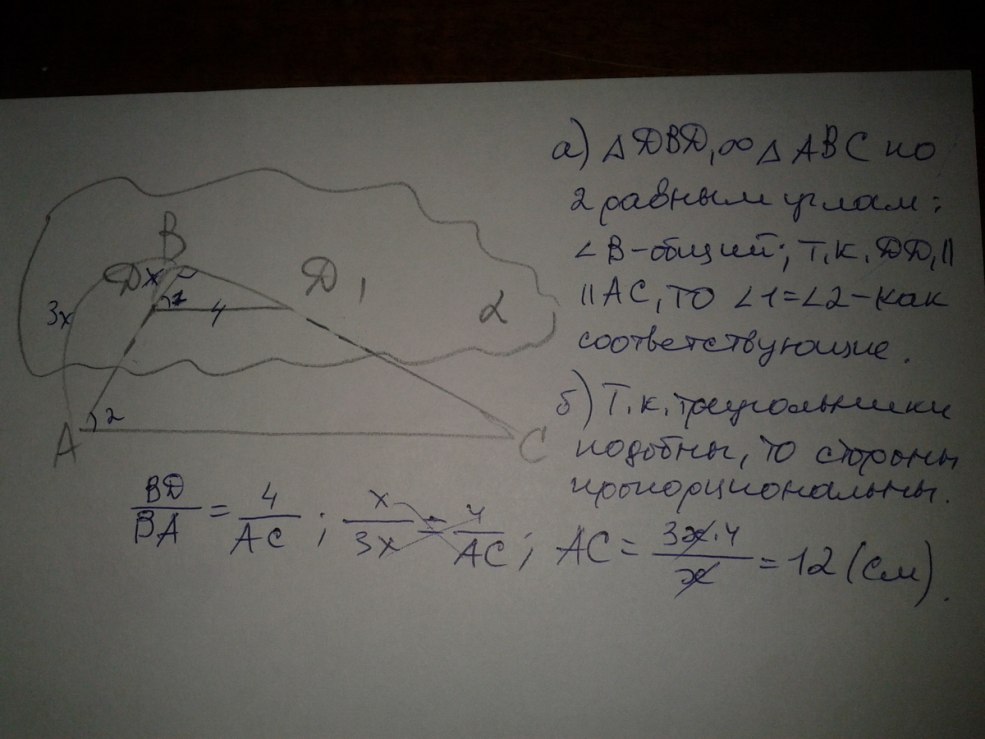 а) △ DBD₁ ∞ △ ABC по
2 равным углам:
∠B-общий; т.к. DD₁ ||
|| AC, то ∠1=∠2-как
соответствующие.
б) Т.к. треугольники
подобны, то стороны
пропорциональны.
B
D x
D₁
1
3x
4
α
2
A
C
BD/BA = 4/AC ; x/3x = 4/AC ; AC = 3x·4/x = 12 (см).